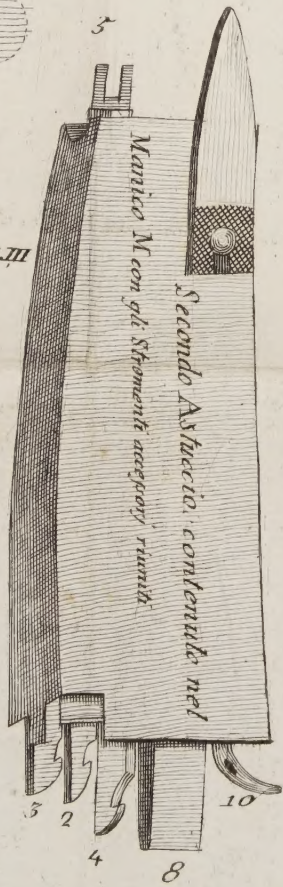 5
III
Secondo Astuccio, contenuto nel
Manico M con gli Stromenti accessorj riuniti
3
2
4
8
10